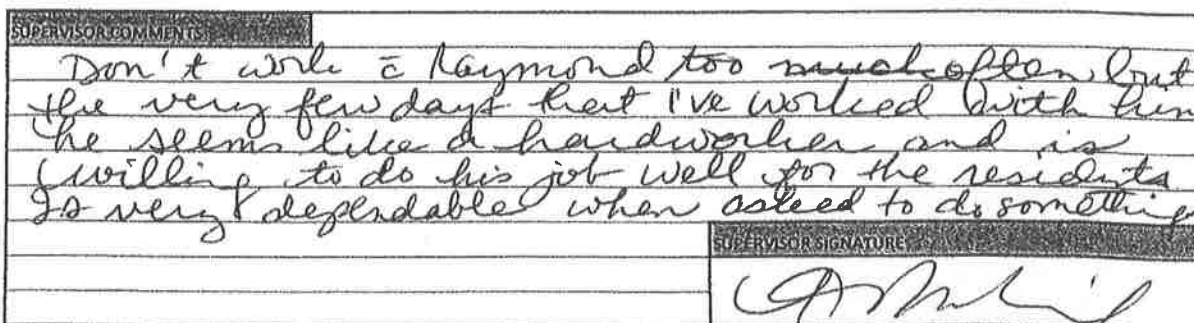 SUPERVISOR COMMENTS
Don't work c̄ Raymond too much often but
the very few days that I've worked with him
he seems like a hardworker and is
willing to do his job well for the residents
Is very dependable when asked to do something
SUPERVISOR SIGNATURE